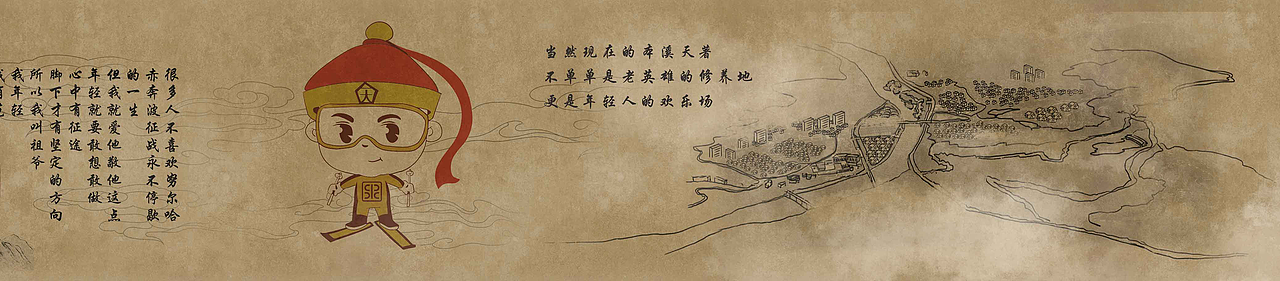 很多人不喜欢努尔哈
赤奔波征战永不停歇
的一生
但我就爱他敬他这点
年轻就要敢想敢做
心中有征途
脚下才有坚定的方向
所以我叫祖爷
我年轻
大
当然现在的本溪天著
不单单是老英雄的修养地
更是年轻人的欢乐场